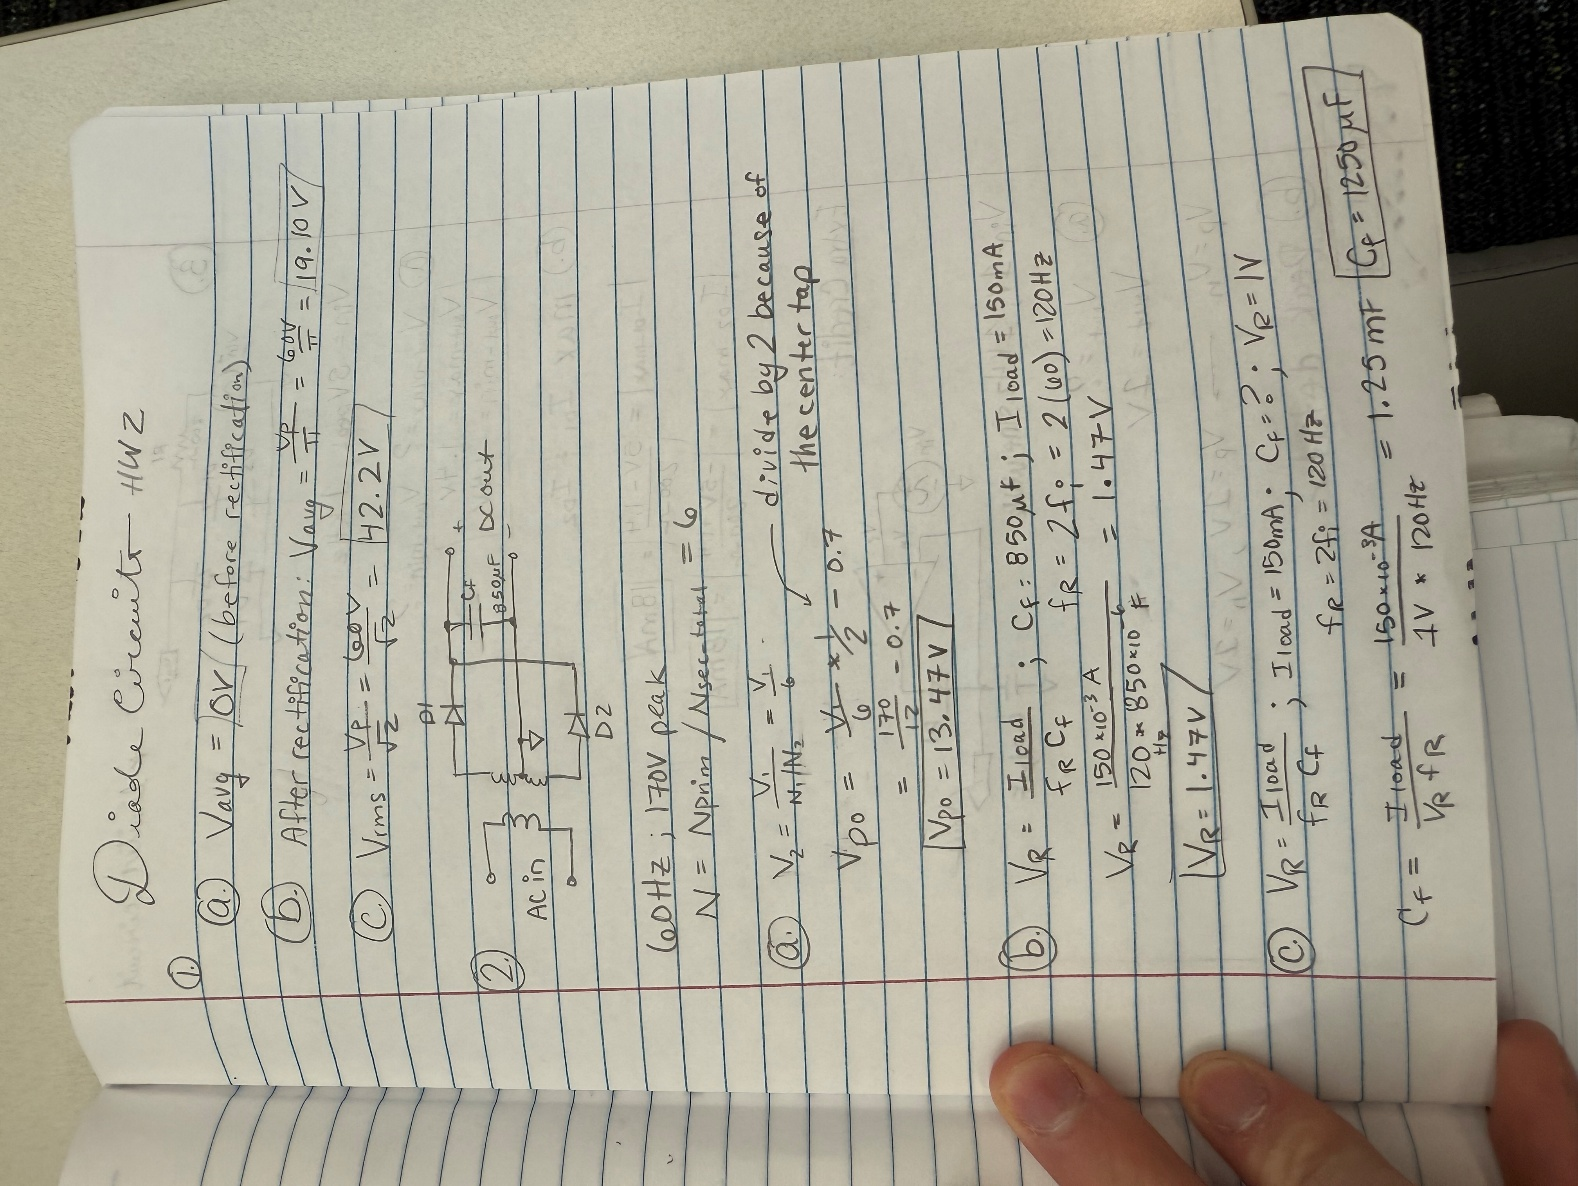 Diode Circuits HW2
1.
a. Vavg = 0V (before rectification)
b. After rectification: Vavg = Vp/π = 60V/π = 19.10V
c. Vrms = Vp/√2 = 60V/√2 = 42.2V
2.
D1
+
CF
850μF
DCout
-
ACin
D2
60Hz; 170V peak
N = Nprim / Nsec-total = 6
a. V2 = V1/(N1/N2) = V1/6
divide by 2 because of
the center tap
Vpo = V1/6 * 1/2 - 0.7
= 170/12 - 0.7
Vpo = 13.47V
b. VR = Iload/(fR Cf) ; Cf = 850μf ; Iload = 150mA
fR = 2fi = 2(60) = 120Hz
VR = 150x10⁻³ A/(120 Hz * 850x10⁻⁶ F) = 1.47V
VR = 1.47V
c. VR = Iload/(fR Cf) ; Iload = 150mA; Cf = ?; VR = 1V
fR = 2fi = 120Hz
Cf = Iload/(VR fR) = 150x10⁻³A/(1V * 120Hz) = 1.25mF
Cf = 1250μF